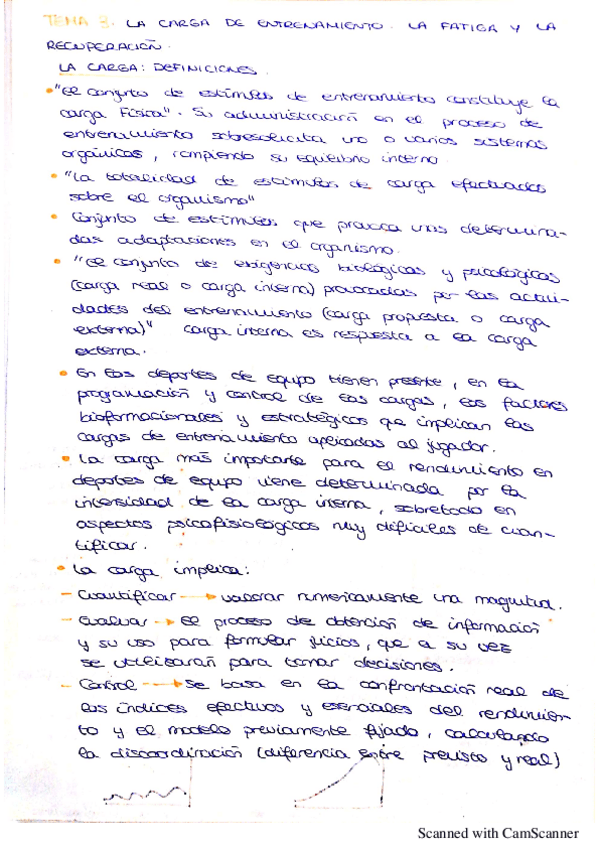 TEMA 3. LA CARGA DE ENTRENAMIENTO. LA FATIGA Y LA
RECUPERACIÓN.
LA CARGA: DEFINICIONES.
• "El conjunto de estímulos de entrenamiento constituye la
carga física". Su administración en el proceso de
entrenamiento sobresolicita uno o varios sistemas
orgánicos, rompiendo su equilibrio interno.
• "La totalidad de estímulos de carga efectuados
sobre el organismo"
• Conjunto de estímulos que provoca unas determina-
das adaptaciones en el organismo.
• "El conjunto de exigencias biológicas y psicológicas
(carga real o carga interna) provocadas por las activi-
dades del entrenamiento (carga propuesta o carga
externa)" carga interna es respuesta a la carga
externa.
• En los deportes de equipo tienen presente, en la
programación y control de las cargas, los factores
bioformacionales y estratégicos que implican las
cargas de entrenamiento aplicadas al jugador.
• La carga más importante para el rendimiento en
deportes de equipo viene determinada por la
intensidad de la carga interna, sobretodo en
aspectos psicofisiológicos muy difíciles de cuan-
tificar.
• La carga implica:
- Cuantificar → valorar numéricamente una magnitud.
- Evaluar → el proceso de obtención de información
y su uso para formular juicios, que a su vez
se utilizarán para tomar decisiones.
- Control → se basa en la confrontación real de
los índices efectivos y esenciales del rendimien-
to y el modelo previamente fijado, calculando
la discoordinación (diferencia entre previsto y real)
Scanned with CamScanner